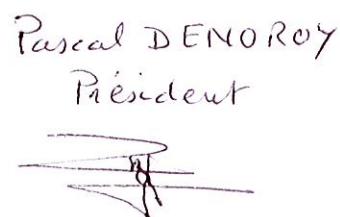 Pascal DENOROY
Président